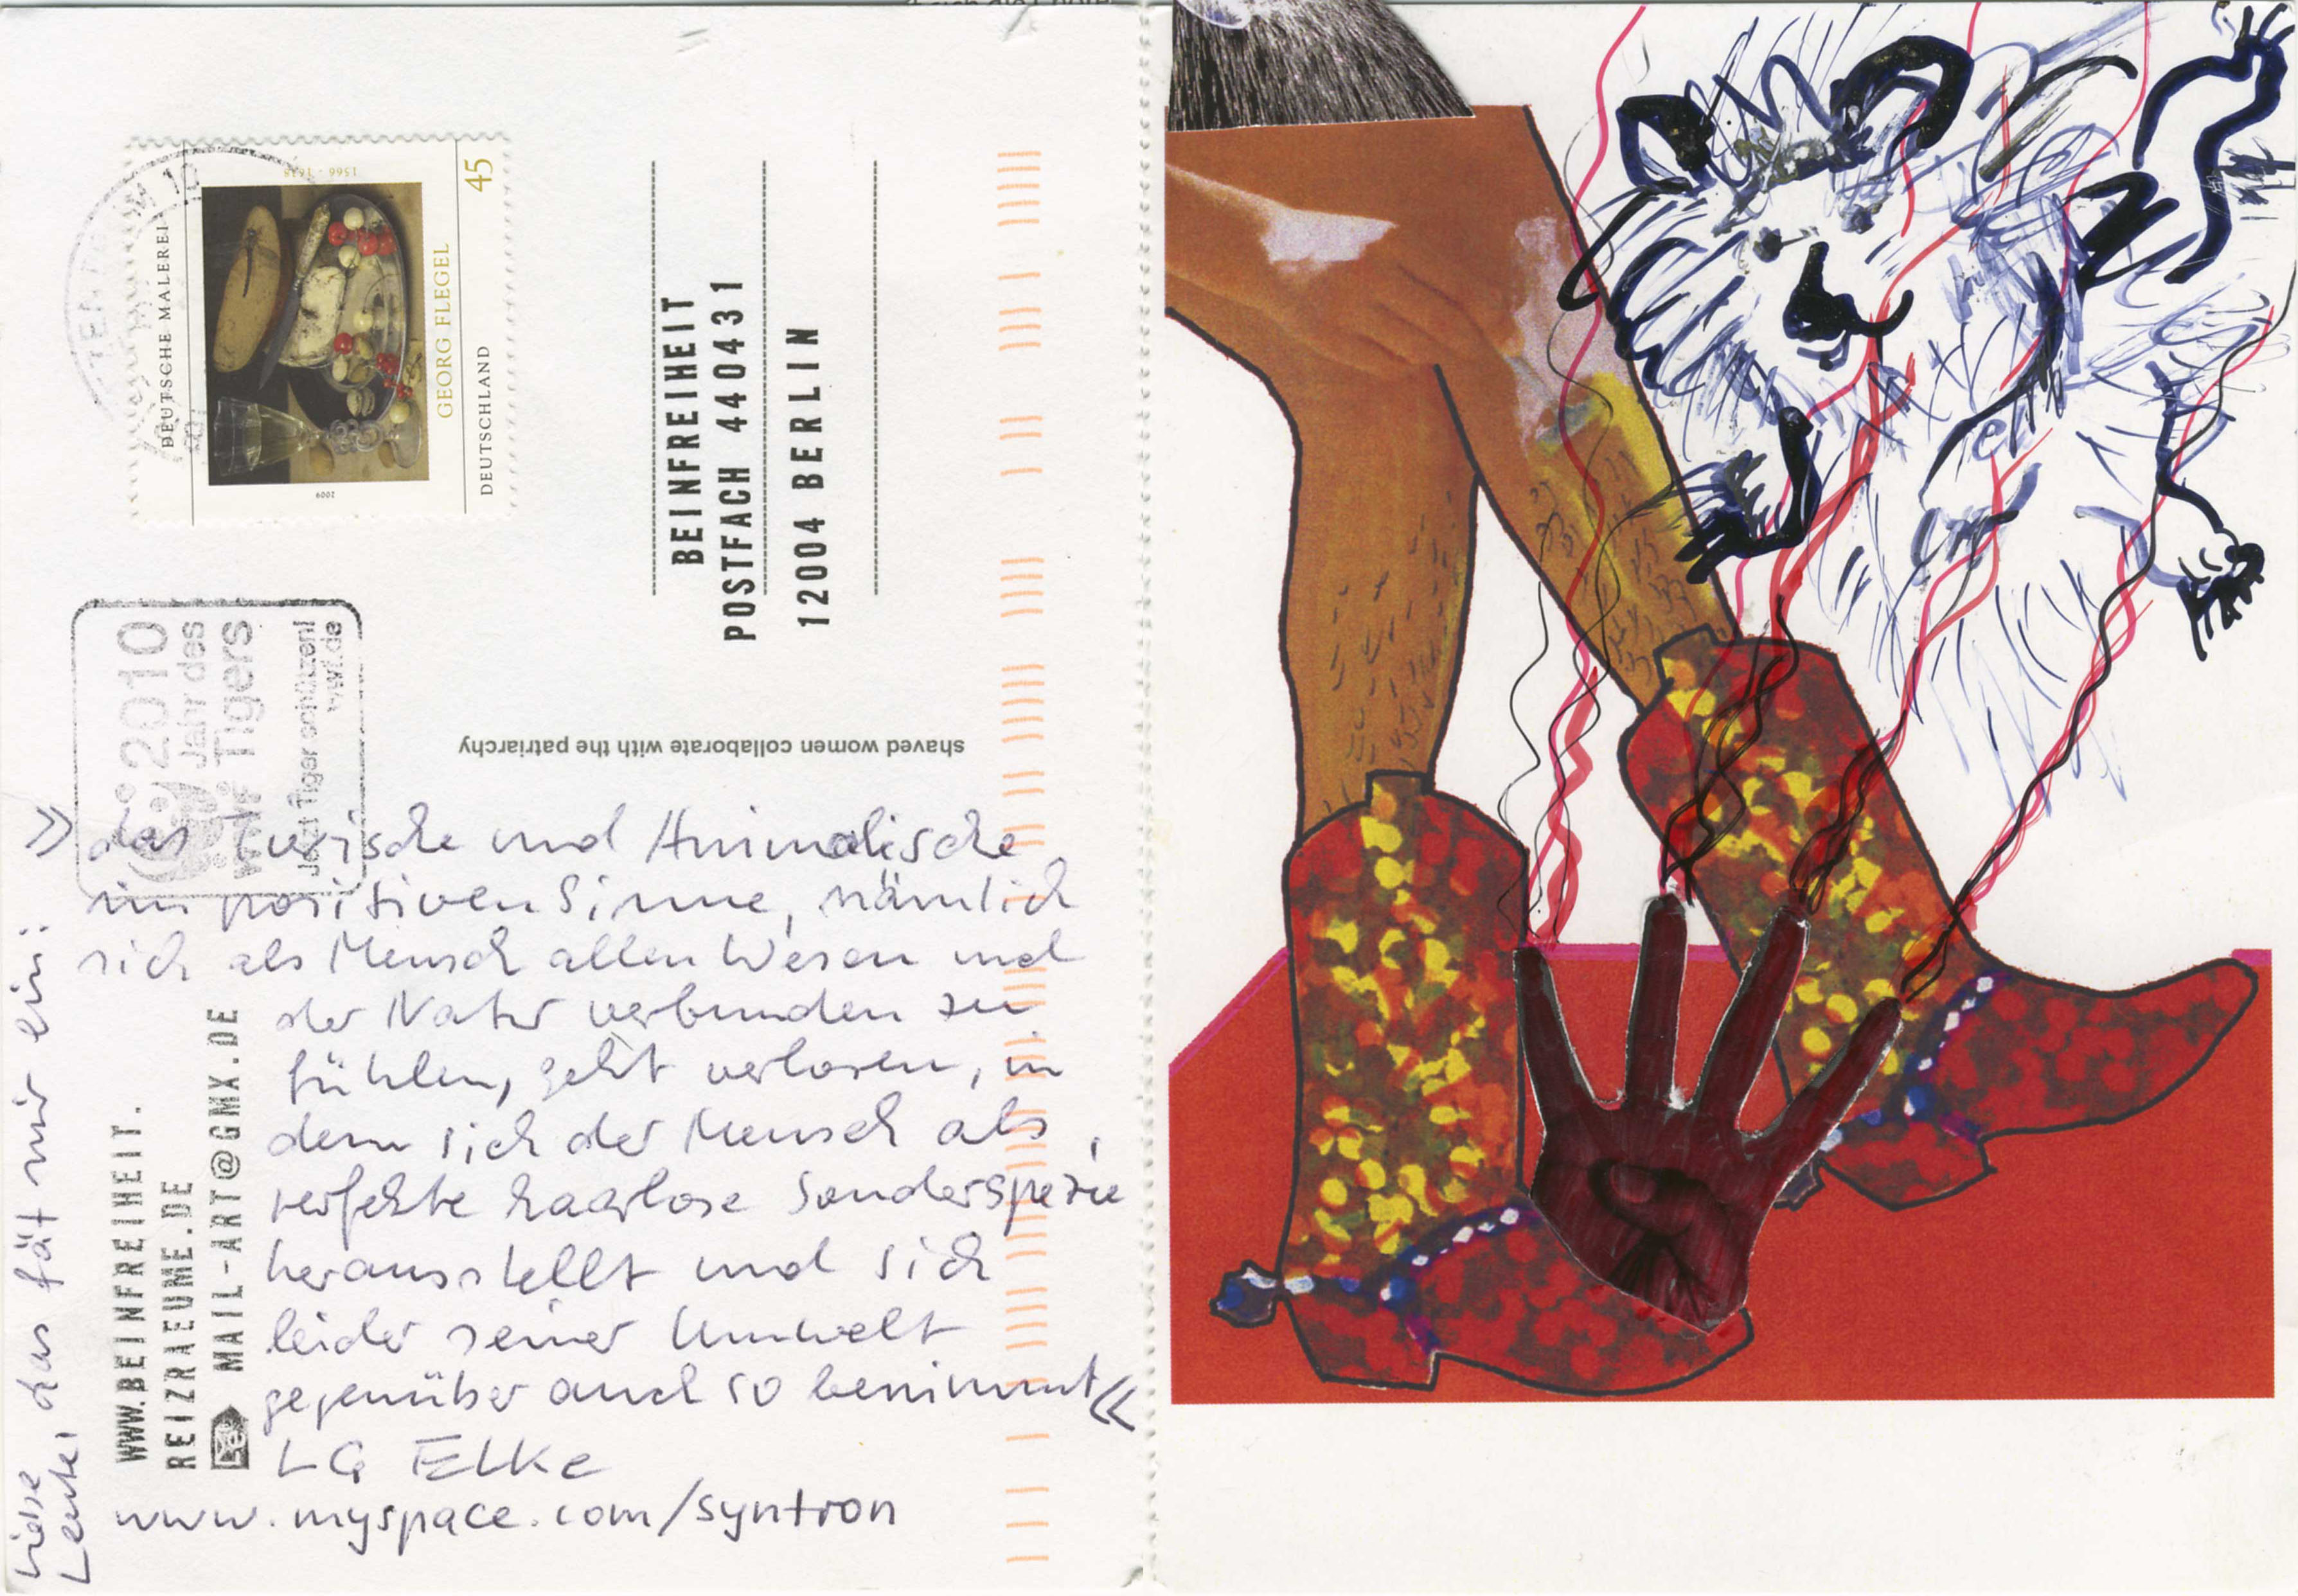 DEUTSCHE MALEREI
1566 - 1638
GEORG FLEGEL
2009
45
DEUTSCHLAND
BEINFREIHEIT
POSTFACH 440431
12004 BERLIN
2010
Jahr des
Tigers
Jetzt Tiger schützen!
wwf.de
shaved women collaborate with the patriarchy
Liebe
Leute, das fät mir ein:
» das Tierische und Animalische
im positiven Sinne, nämlich
sich als Mensch allen Wesen und
der Natur verbunden zu
fühlen, geht verloren, in
dem sich der Mensch als,
perfekte haarlose Sonderspezie
herausstellt und sich
leider seiner Umwelt
gegenüber auch so benimmt «
LG Elke
www.myspace.com/syntron
WWW.BEINFREIHEIT.
REIZRAEUME.DE
MAIL-ART@GMX.DE